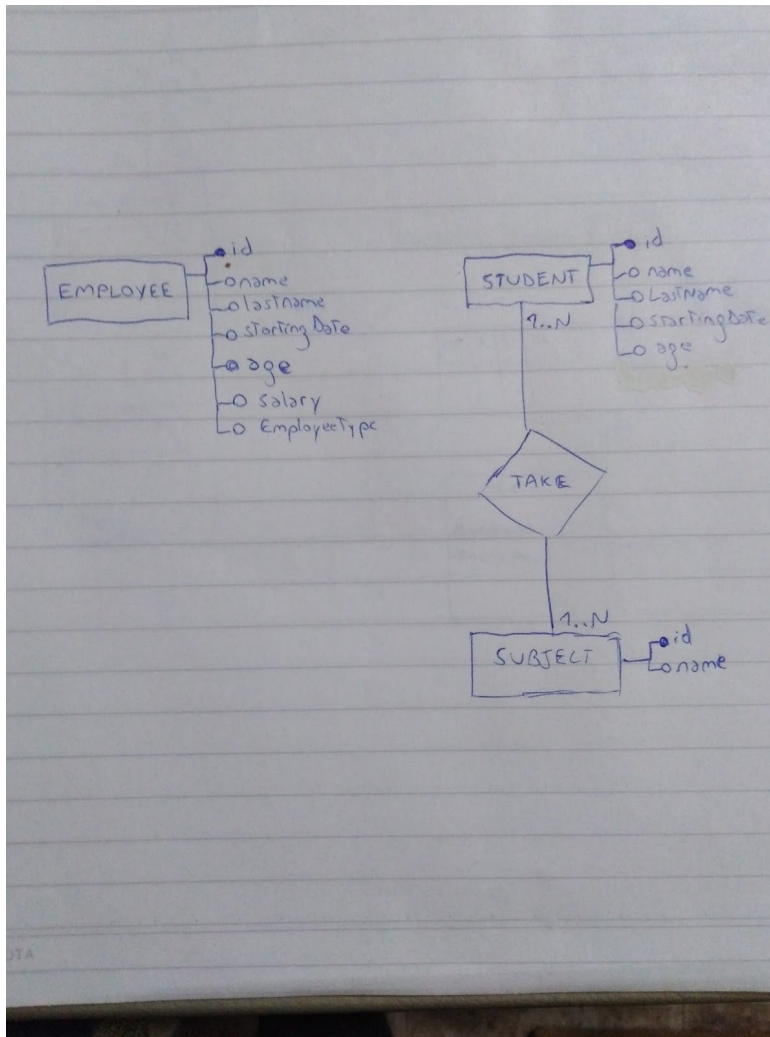 EMPLOYEE
id
name
lastname
startingDate
age
salary
EmployeeType
STUDENT
id
name
LastName
startingDate
age
1..N
TAKE
1..N
SUBJECT
id
name